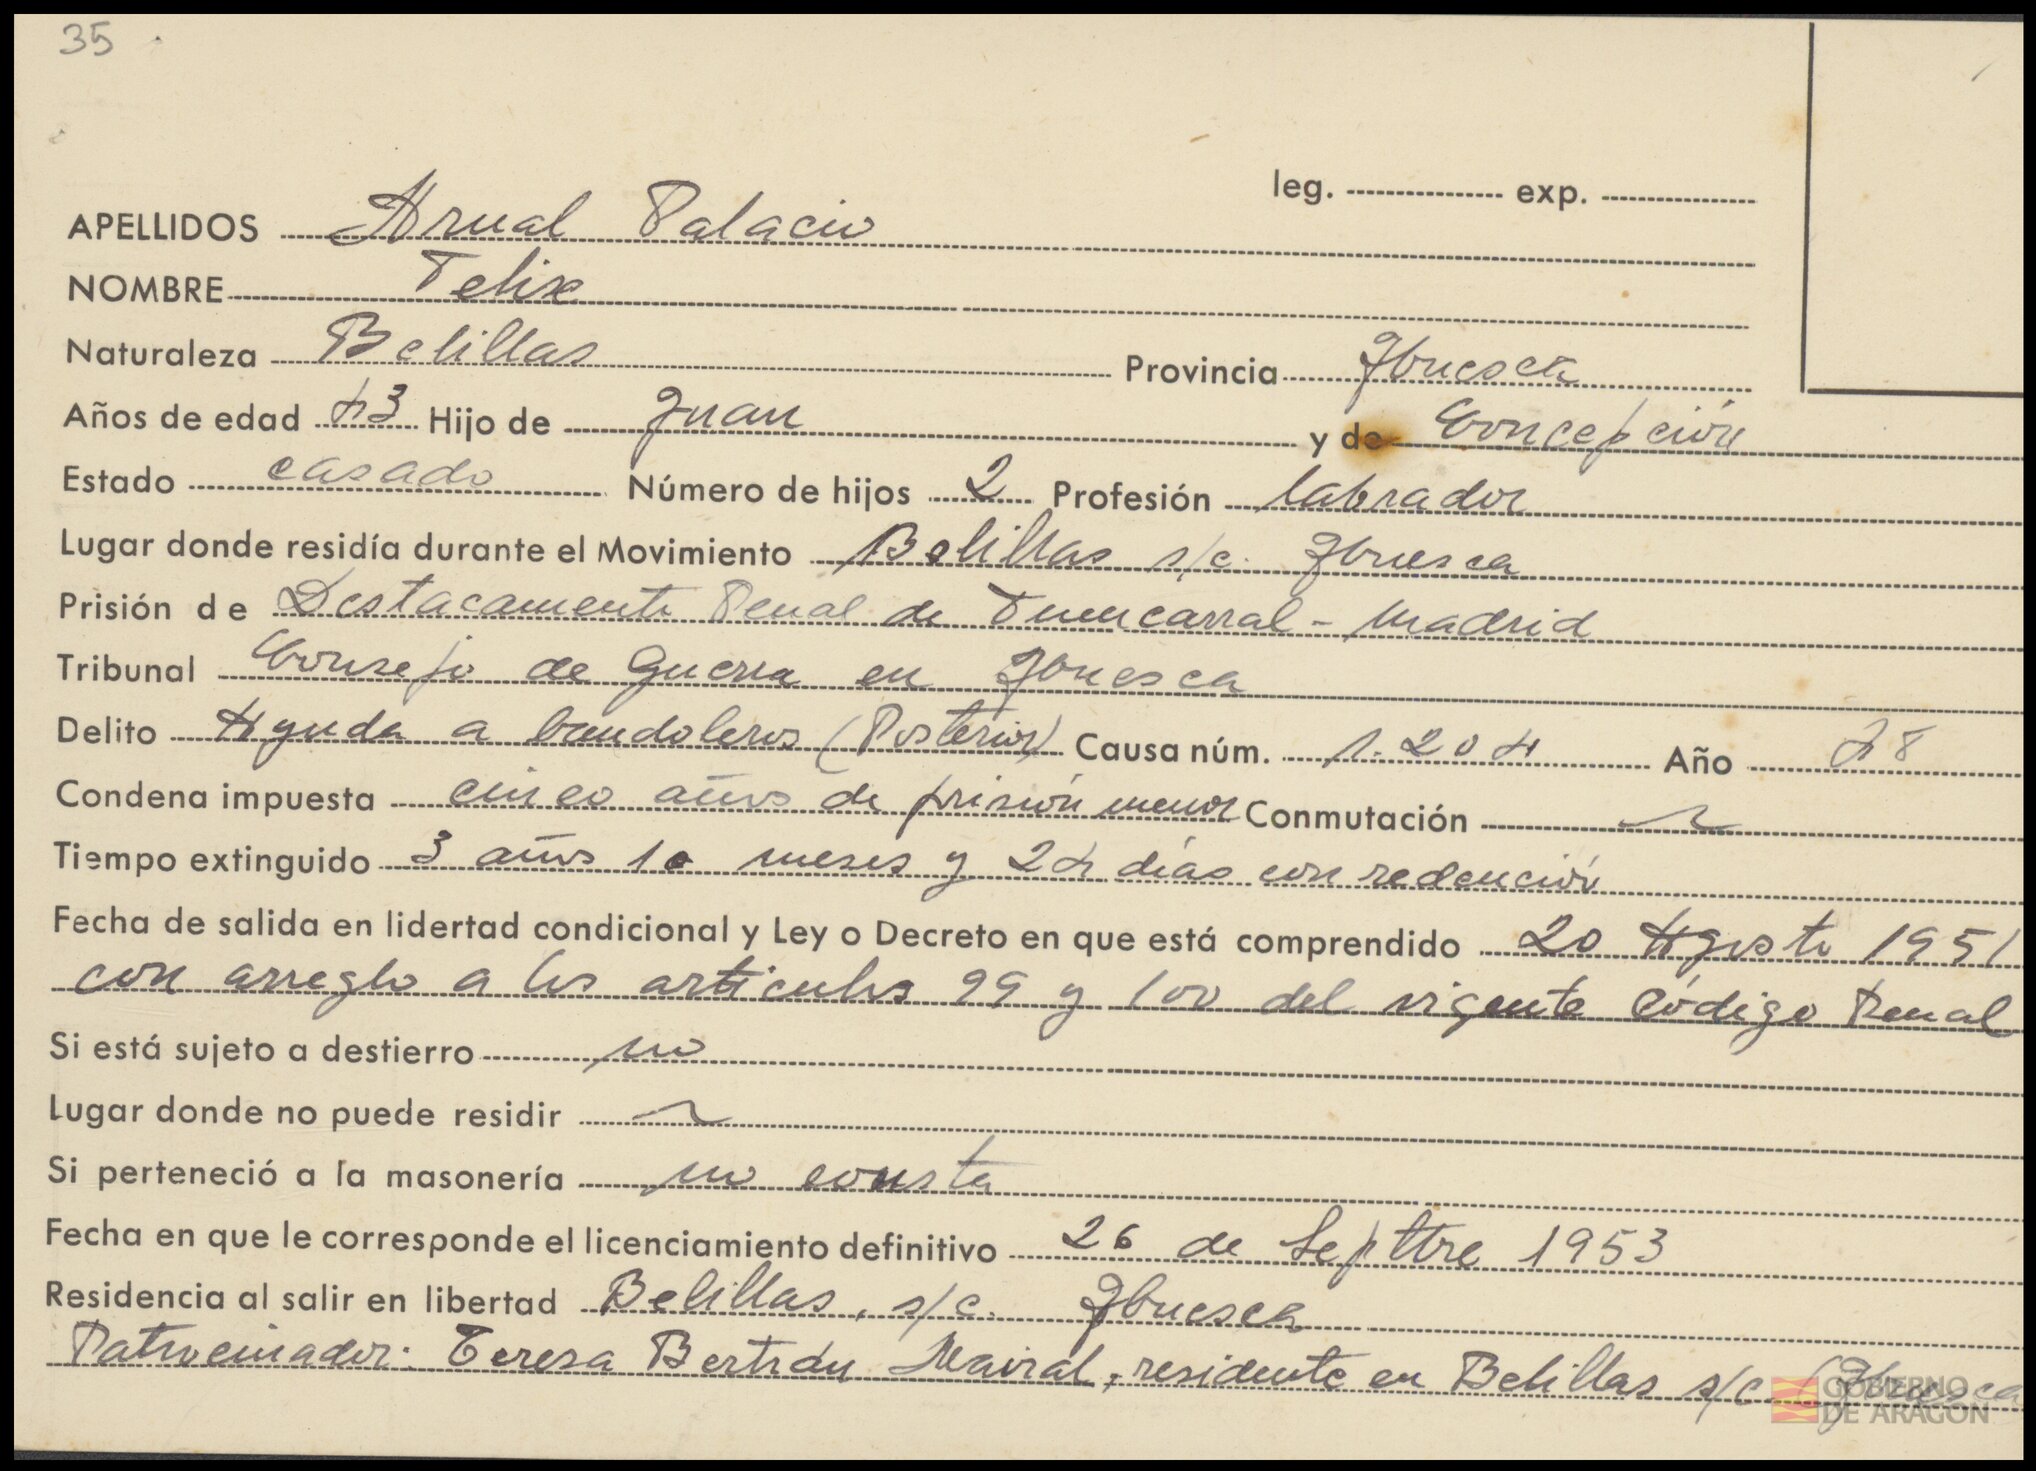 35
leg. exp.
APELLIDOS Arnal Palacio
NOMBRE Felix
Naturaleza Belillas Provincia Huesca
Años de edad 43 Hijo de Juan y de Concepción
Estado casado Número de hijos 2 Profesión labrador
Lugar donde residía durante el Movimiento Belillas s/c. Huesca
Prisión de Destacamento Penal de Fuencarral - Madrid
Tribunal Consejo de Guerra en Huesca
Delito Ayuda a bandoleros (Posterior) Causa núm. 1.204 Año 48
Condena impuesta cinco años de prisión menor Conmutación
Tiempo extinguido 3 años 10 meses y 24 días con redención
Fecha de salida en lidertad condicional y Ley o Decreto en que está comprendido 20 Agosto 1951
con arreglo a los articulos 99 y 100 del vigente Código Penal
Si está sujeto a destierro no
Lugar donde no puede residir
Si perteneció a la masonería no consta
Fecha en que le corresponde el licenciamiento definitivo 26 de Septbre 1953
Residencia al salir en libertad Belillas, s/c. Huesca
Patrocinador: Teresa Bertrán Mairal, residente en Belillas s/c (Huesca
GOBIERNO
DE ARAGON